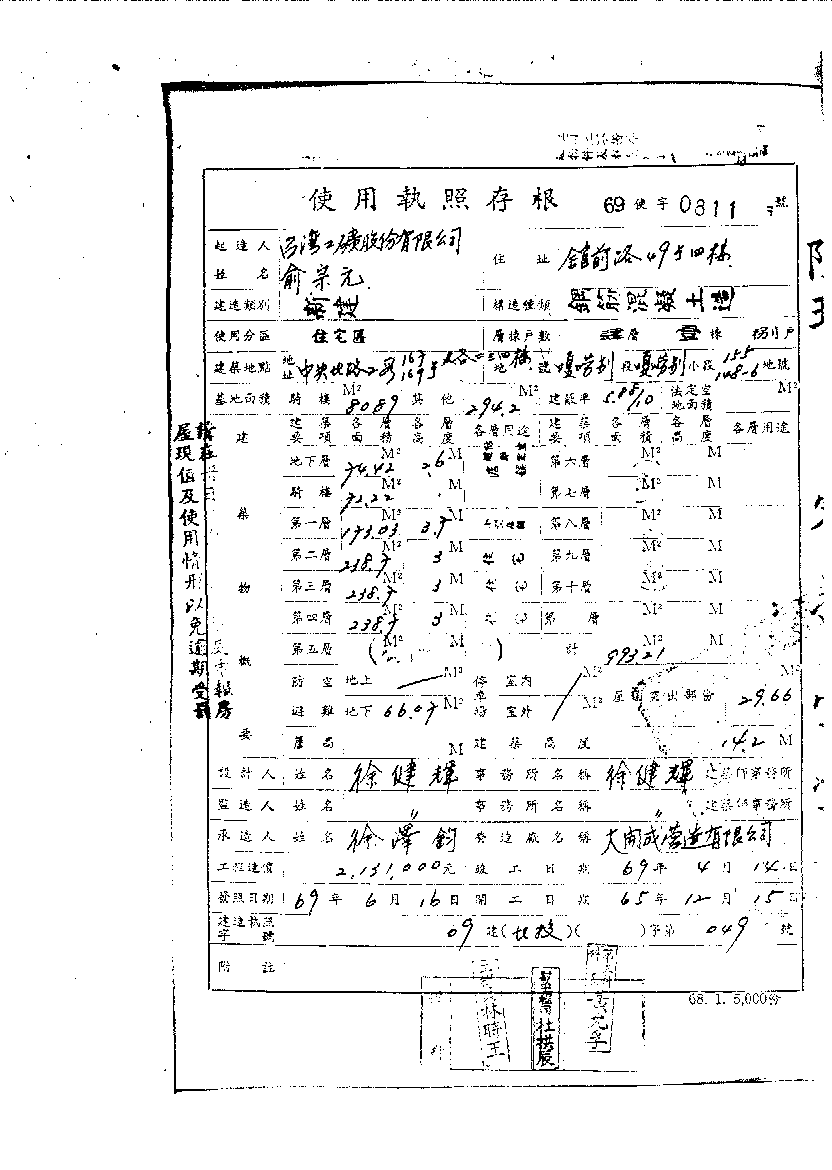 使用執照存根 69使字0811號
起造人姓名 台灣工礦股份有限公司 俞宗元 住址 館前路49号四棟
建造類別 新建 構造種類 鋼筋混凝土造
使用分區 住宅區 層棟戶數 肆層壹棟 戶
建築地點 地址 中央北路二段 167 169号 地號 嘎嘮别段嘎嘮别小段 155 148-6 地號
基地面積 騎樓 80.89 M² 其他 294.2 M² 建蔽率 法定空地面積 M²
建築物概要
建築要項 各層面積 各層高度 各層用途 建築要項 各層面積 各層高度 各層用途
地下層 74.42 M² 2.6 M 第六層 M² M
騎樓 72.22 M² M 第七層 M² M
第一層 173.03 M² 3.7 M 第八層 M² M
第二層 238.7 M² 3 M 住宅 第九層 M² M
第三層 238.7 M² 3 M 住宅 第十層 M² M
第四層 238.7 M² 3 M 住宅 第 層 M² M
第五層 ( M² ) 計 993.21
防空避難 地上 M² 停車場 室內 M² 屋頂突出部份 29.66 M²
地下 66.07 M² 室外 M²
簷高 M 建築高度 14.2 M
設計人 姓名 徐健輝 事務所名稱 徐健輝 建築師事務所
監造人 姓名 〃 事務所名稱 〃 建築師事務所
承造人 姓名 徐澤鈞 營造廠名稱 大開成營造有限公司
工程造價 2,131,000元 竣工日期 69年4月14日
發照日期 69年6月16日 開工日期 65年12月15日
建造執照字號 09建(北投)( )字第049號
附註
68. 1. 5,000份
林時王
杜拱辰
屋現值及使用情形以免逾期受罰